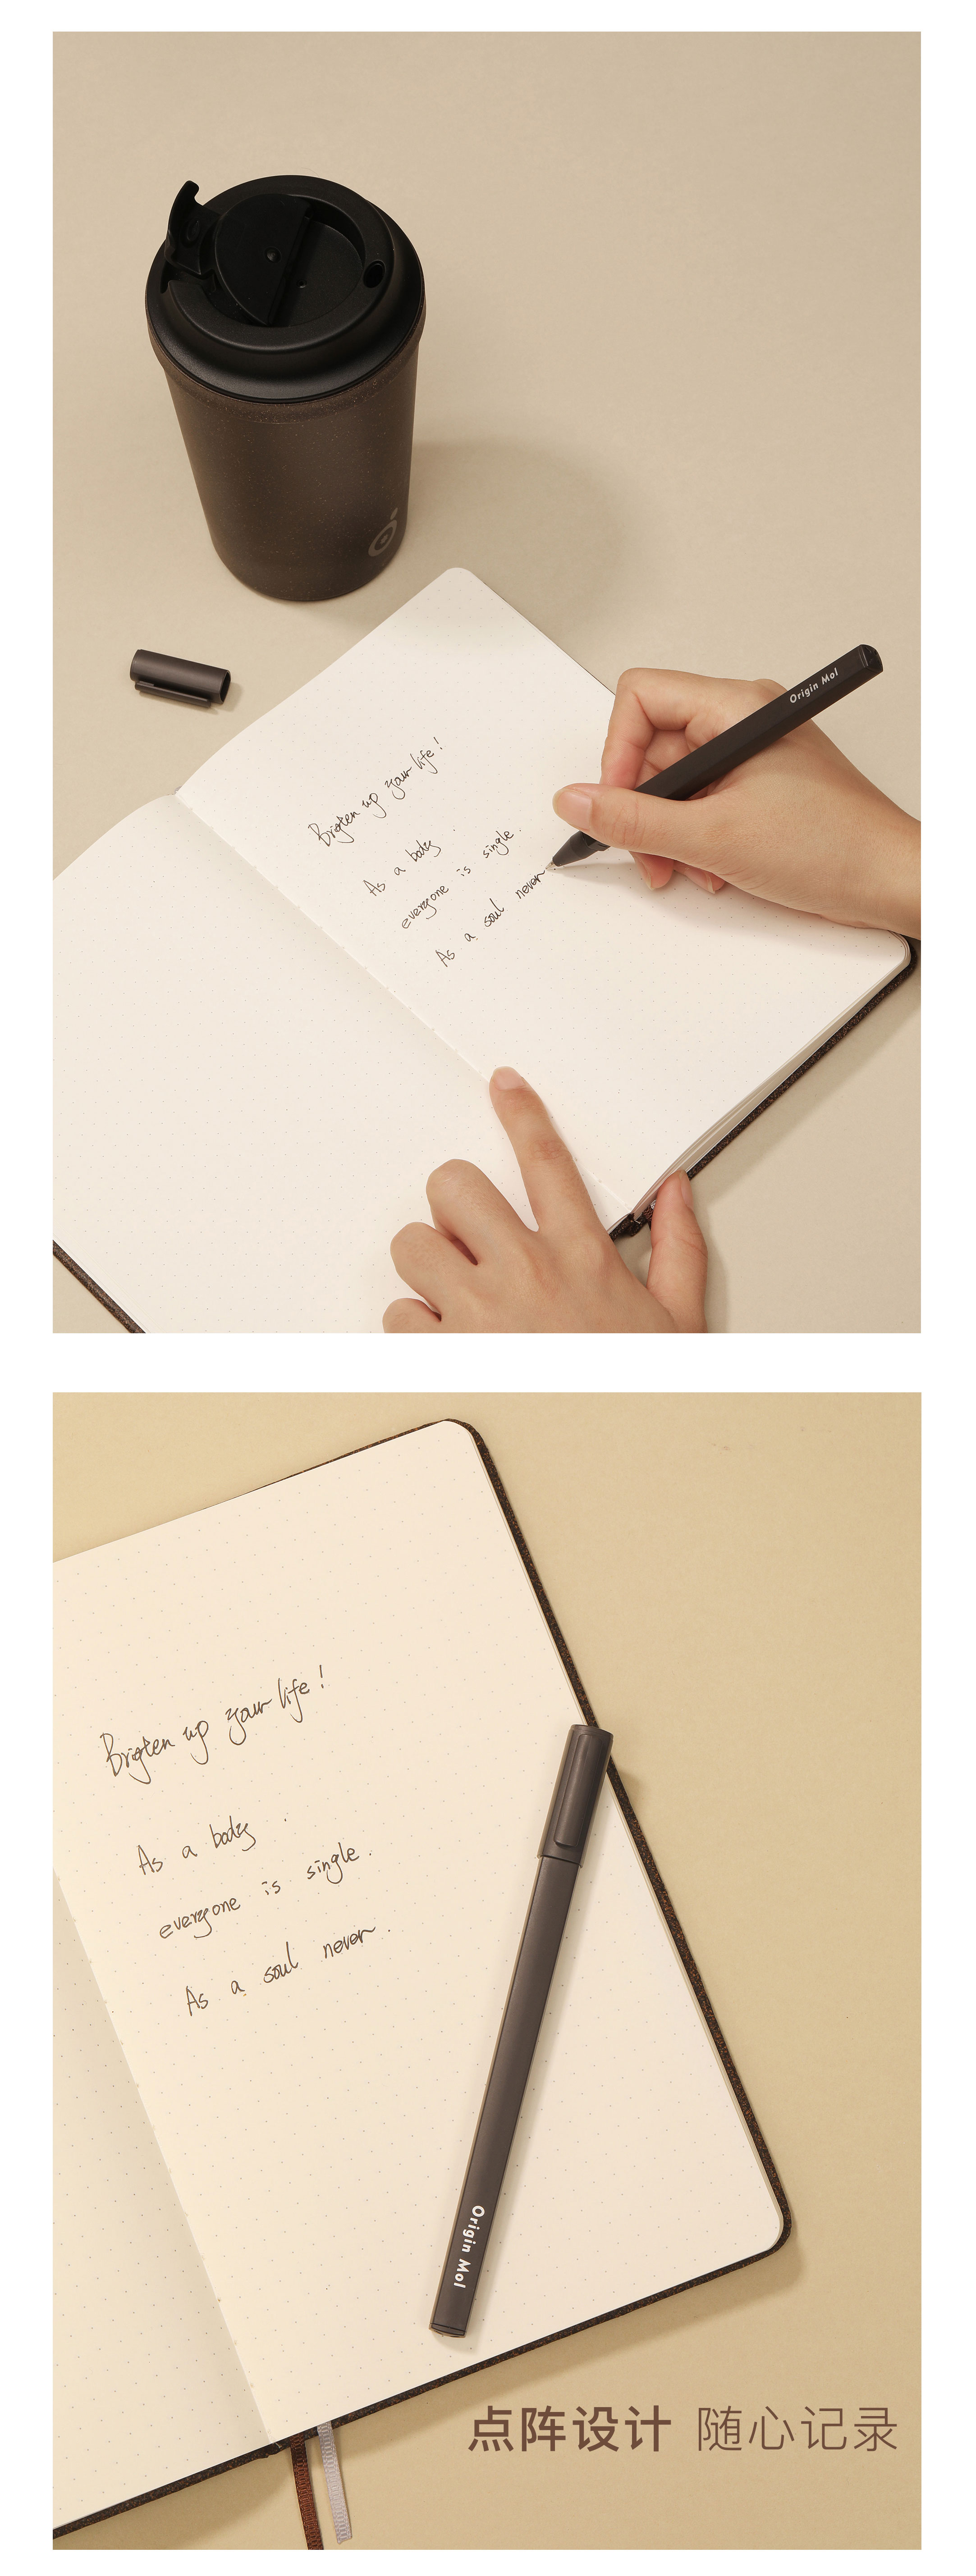 Origin Mol
Brigten up your life!
As a body.
everyone is single.
As a soul never
Brigten up your life!
As a body.
everyone is single.
As a soul never.
Origin Mol
点阵设计 随心记录